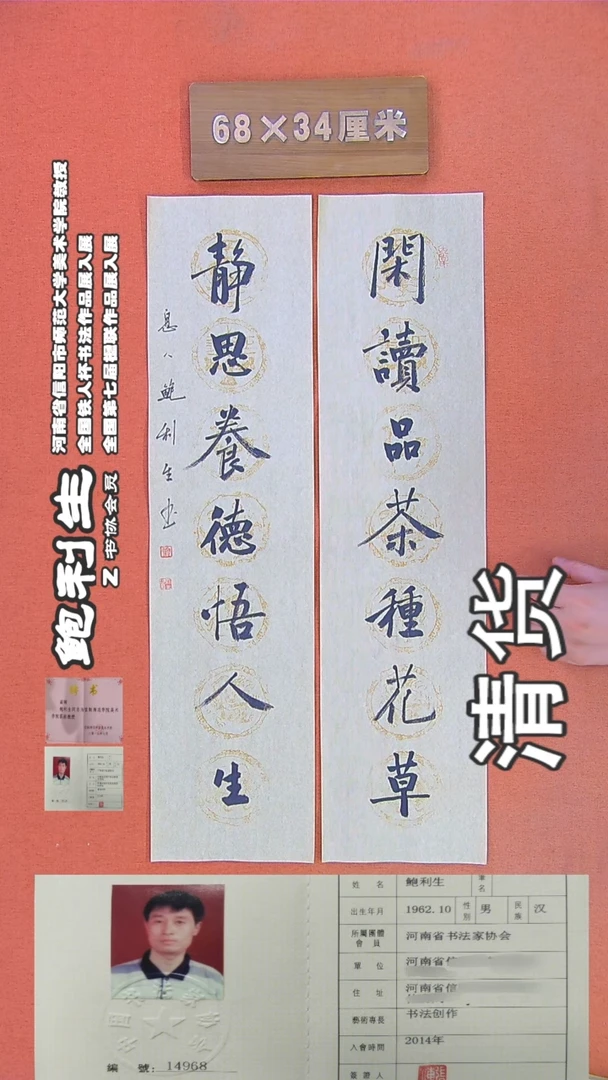 68×34厘米
閑讀品茶種花草
静思養德悟人生
鮑利生书
河南省信阳市师范大学美术学院教授
全国铁人杯书法作品展入展
全国第七届楹联作品展入展
鲍利生
Z 书协会员
清货
证书
姓名 鲍利生 筆名
出生年月 1962.10 性别 男 民族 汉
所屬團體會員 河南省书法家协会
單位 河南省信
住址 河南省信
藝術專長 书法创作
入會時間 2014年
簽證人
編號: 14968